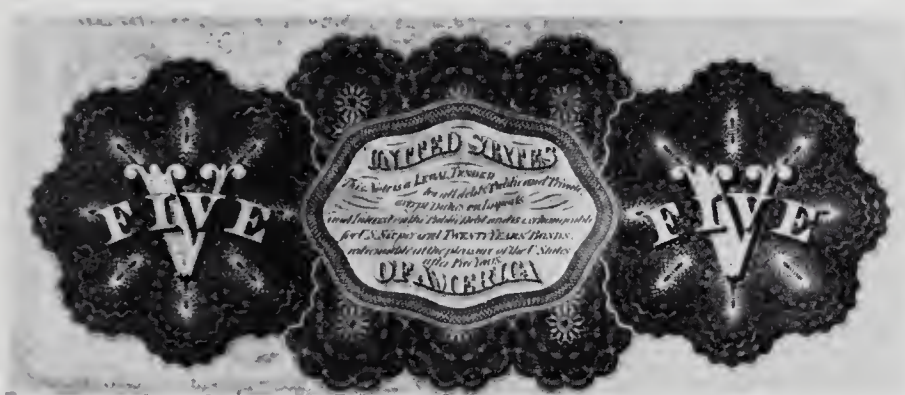 UNITED STATES
This Note is a LEGAL TENDER
for all debts Public and Private
except Duties on Imports
and Interest on the Public Debt and is exchangeable
for U.S. Six per cent TWENTY YEARS BONDS,
redeemable at the pleasure of the U. States
after Five Years.
OF AMERICA
FIVE
V
FIVE
V